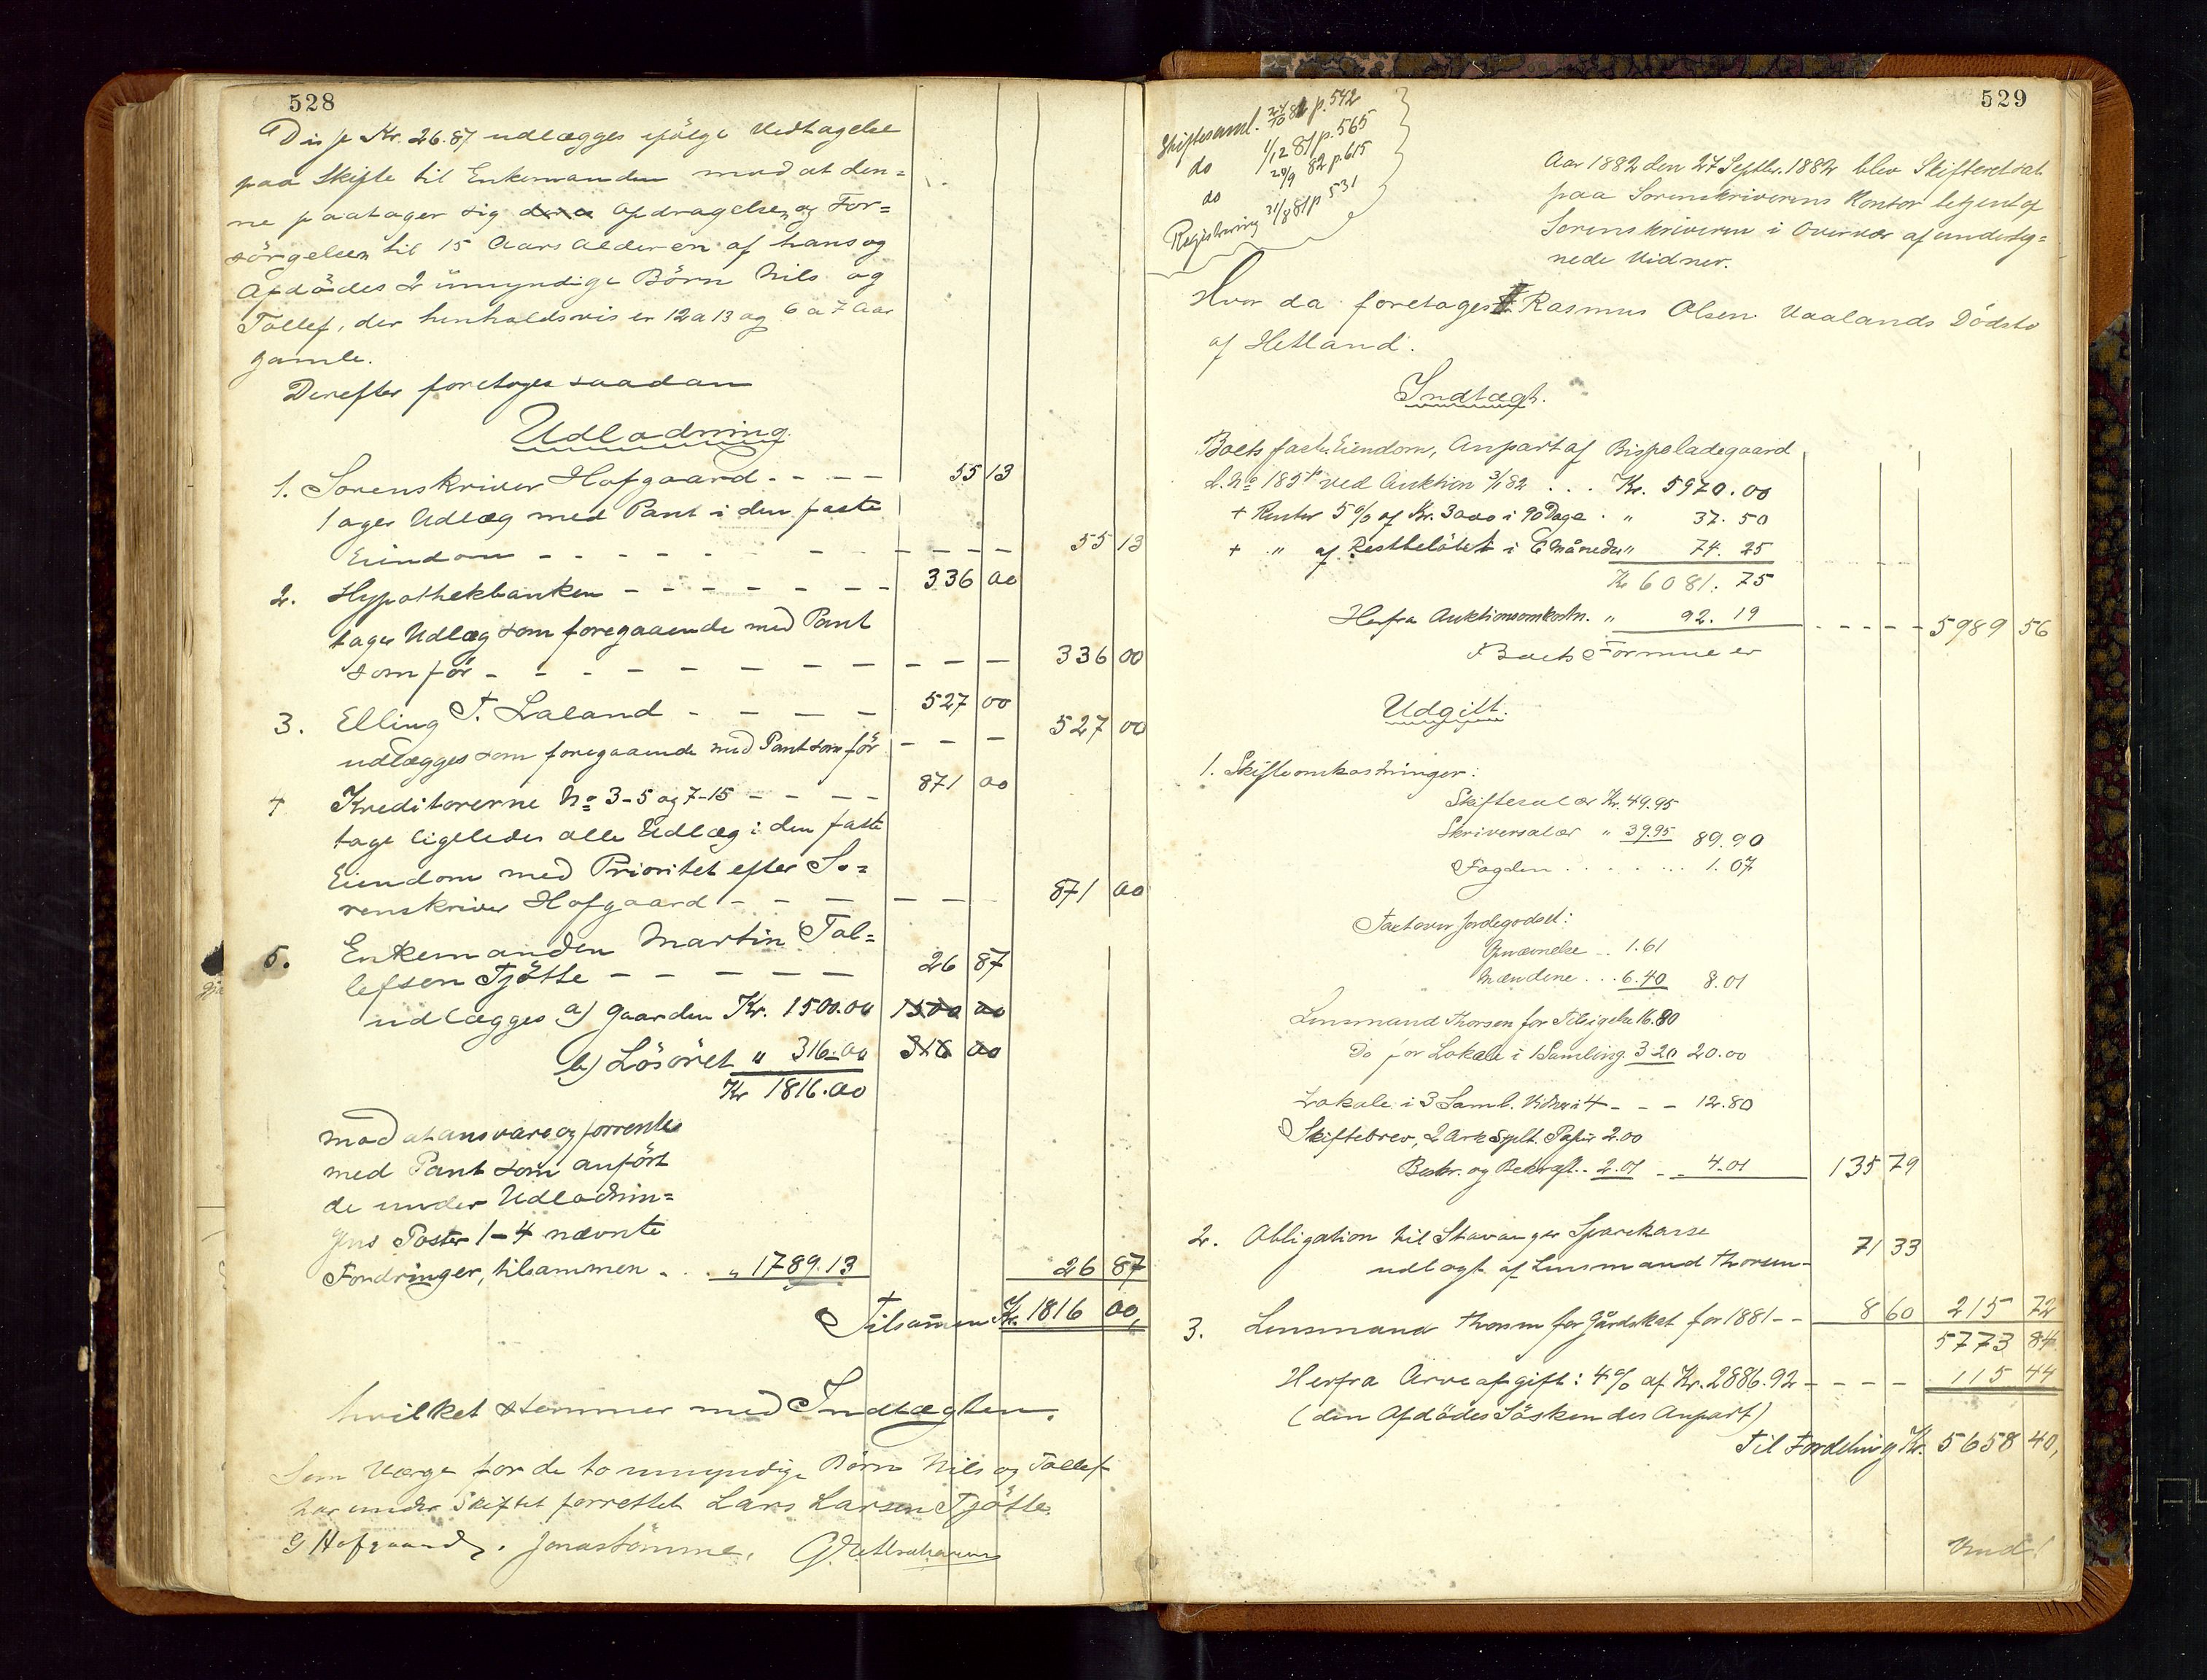 528
Disse Kr. 26.87 udlægges ifölge Vedtagelse
paa Skifte til Enkemanden mod at den=
ne paatager sig Opdragelsen og For=
sörgelsen til 15 Aars Alderen af hans og
Afdödes 2 umyndige Börn Nils og
Tollef, der henholdsvis er 12 a 13 og 6 a 7 Aar
gamle.
Derefter foretoges saadan
Udlodning.
1. Sorenskriver Hofgaard - - - - 55 13
tager Udlæg med Pant i den faste
Eiendom - - - - - - - - - - 55 13
2. Hypothekbanken - - - - - - 336 00
tager Udlæg som foregaaende med Pant
som för - - - - - - - - - - 336 00
3. Elling T. Laland - - - - - 527 00
udlægges som foregaaende med Pant som för - - - 527 00
4 Kreditorerne No 3-5 og 7-15 - - - - 871 00
tage ligeledes alle Udlæg i den faste
Eiendom med Prioritet efter So=
renskriver Hofgaard - - - - - - 871 00
5. Enkemanden Martin Tol=
lefsen Tjötte - - - - - - 26 87
udlægges a) Gaarden Kr. 1500.00 1500 00
b) Lösöret " 316.00 316 00
Kr 1816.00
mod at ansvare og forrente
med Pant som anfört
de under Udlodnin=
gens Poster 1-4 nævnte
Fordringer, tilsammen . . . " 1789.13 26 87
Tilsammen Kr. 1816 00,
hvilket stemmer med Indtægten.
Som Værge for de to umyndige Börn Nils og Tollef
har under Skiftet forrettet Lars Larsen Tjötte.
G Hofgaard. Jonas Tömme.
529
Skiftesaml. 24/10 81 p. 542
do 1/12 81 p. 565
do 20/9 82 p. 615
Registrering 31/8 81 p 531
Aar 1882 den 27 Septbr. 1882 blev Skifteret sat
paa Sorenskriverens Kontor betjent af
Sorenskriveren i Overvær af underteg=
nede Vidner.
Hvor da foretoges Rasmus Olsen Vaalands Dödsbo
af Hetland.
Indtægt.
Boets faste Eiendom, Anpart af Bispeladegaard
L. No 185 ved Auktion 3/1 82 . . . Kr. 5970.00
+ Renter 5 % af Kr. 3000 i 90 Dage . " 37.50
+ " af Restbelöbet i 6 Måneder " 74.25
Kr 6081.75
Herfra Auktionsomkostn. " 92.19 - - - - - 5989 56
Boets Formue er
Udgift.
1. Skifteomkostninger:
Skiftesalær Kr. 49.95
Skriversalær " 39.95 89.90
Fogden . . . . . . . . 1.07
Taxt over Jordegodset:
Opnævnelse . . 1.61
Mændene . . . 6.40 8.01
Lensmand Thorsen for Tilsigelse 16.80
Do for Lokale i 1 Samling 3.20 20.00
Lokale i 3 Saml. Vidner i 4 - - - 12.80
Skiftebrev, 2 Ark Stplt. Papir 2.00
Beskr. og Bekræft. . 2.01 - - 4.01 135 79
2. Obligation til Stavanger Sparekasse
udlagt af Lensmand Thorsen - 71 33
3. Lensmand Thorsen for Gårdskat for 1881 - - 8 60 215 72
5773 84
Herfra Arveafgift: 4 % af Kr. 2886.92 - - - - 115 44
(den Afdödes Söskendes Anpart)
Til Fordeling Kr. 5658 40,
Vend!